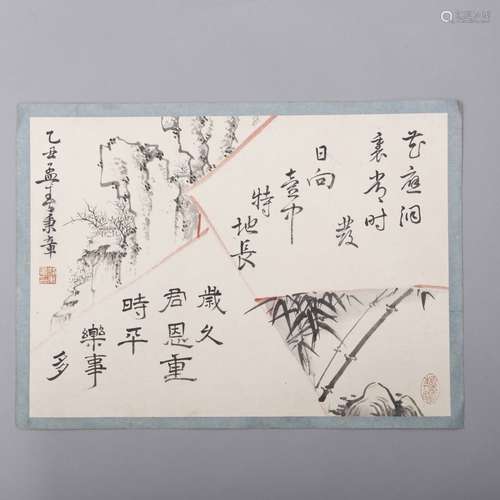 花應洞
裏常時
發
日向
壺中
特
地長
歲久
君恩重
時平
樂事
多
乙丑孟春秉章